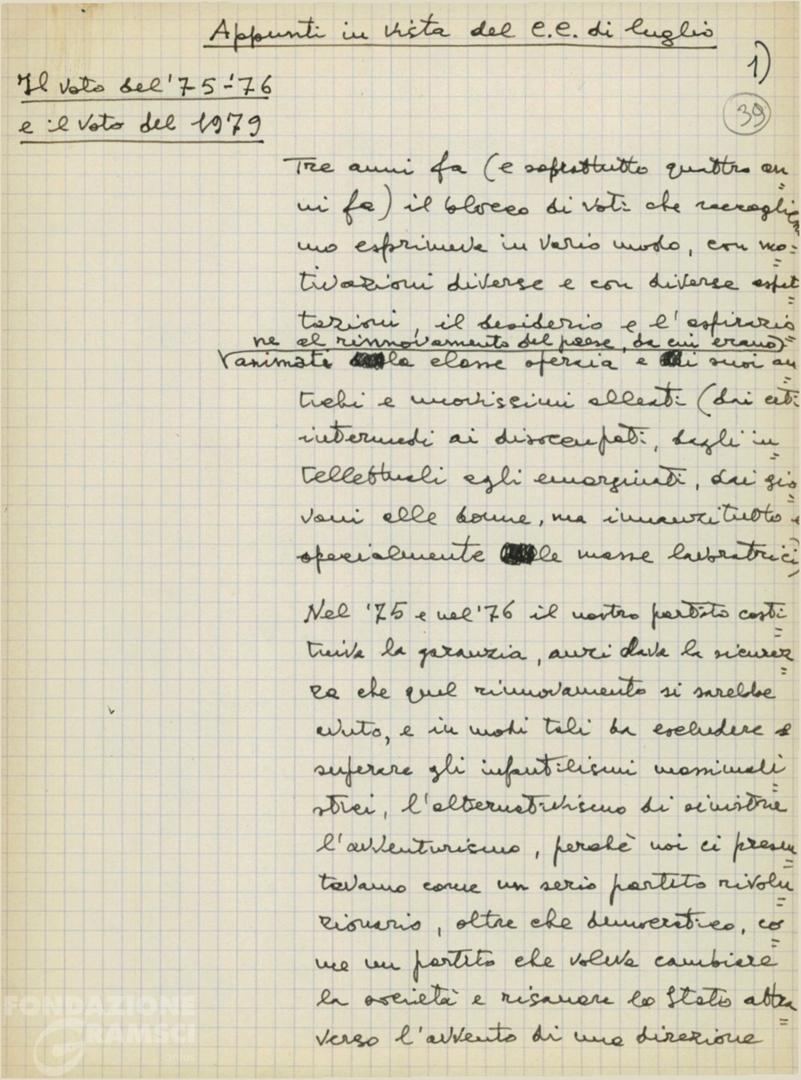 Appunti in vista del C.C. di luglio
1)
39
Il voto del '75-'76
e il voto del 1979
Tre anni fa (e soprattutto quattro an=
ni fa) il blocco di voti che raccoglie
mo esprimeva in vario modo, con mo=
tivazioni diverse e con diverse aspet=
tazioni, il desiderio e l'aspirazio
ne al rinnovamento del paese, da cui erano
animate la classe operaia e i suoi an
tichi e nuovissimi alleati (dai ceti
intermedi ai disoccupati, dagli in=
tellettuali agli emarginati, dai gio=
vani alle donne, ma innanzitutto e
specialmente le masse lavoratrici)
Nel '75 e nel '76 il nostro partito costi=
tuiva la garanzia, anzi dava la sicurez=
za che quel rinnovamento si sarebbe
avuto, e in modi tali da escludere e
superare gli infantilismi massimali=
stici, l'alternativismo di sinistra
l'avventurismo, perchè noi ci presen=
tavamo come un serio partito rivolu=
zionario, oltre che democratico, co=
me un partito che voleva cambiare
la società e risanare lo Stato attra=
verso l'avvento di una direzione
FONDAZIONE
GRAMSCI